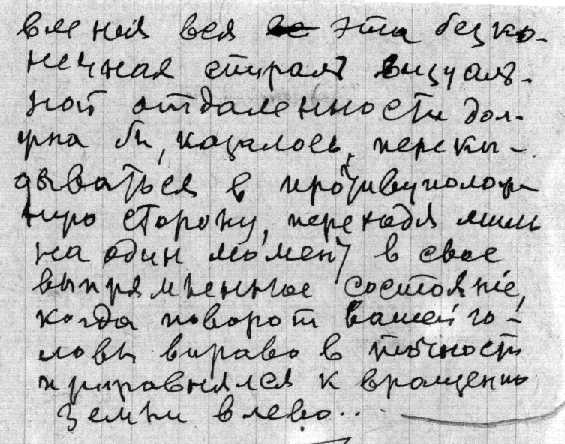 вления вся эта безко-
нечная спираль визуаль-
ной отдаленности дол-
жна бы, казалось, перекы-
дываться в противуполож-
ную сторону, переходя лишь
на один момент в свое
выпрямленное состояніе,
когда поворот вашей го-
ловы вправо в точности
приравнялся к вращению
земли влево...